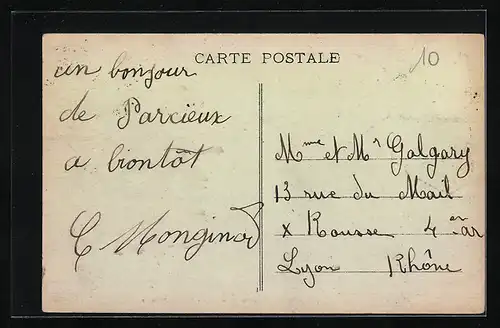 CARTE POSTALE
10
un bonjour
de Parcieux
a biontôt
C Monginod
Mme et Mr Galgary
13 rue du Mail
X Rousse 4 en ar
Lyon Rhône